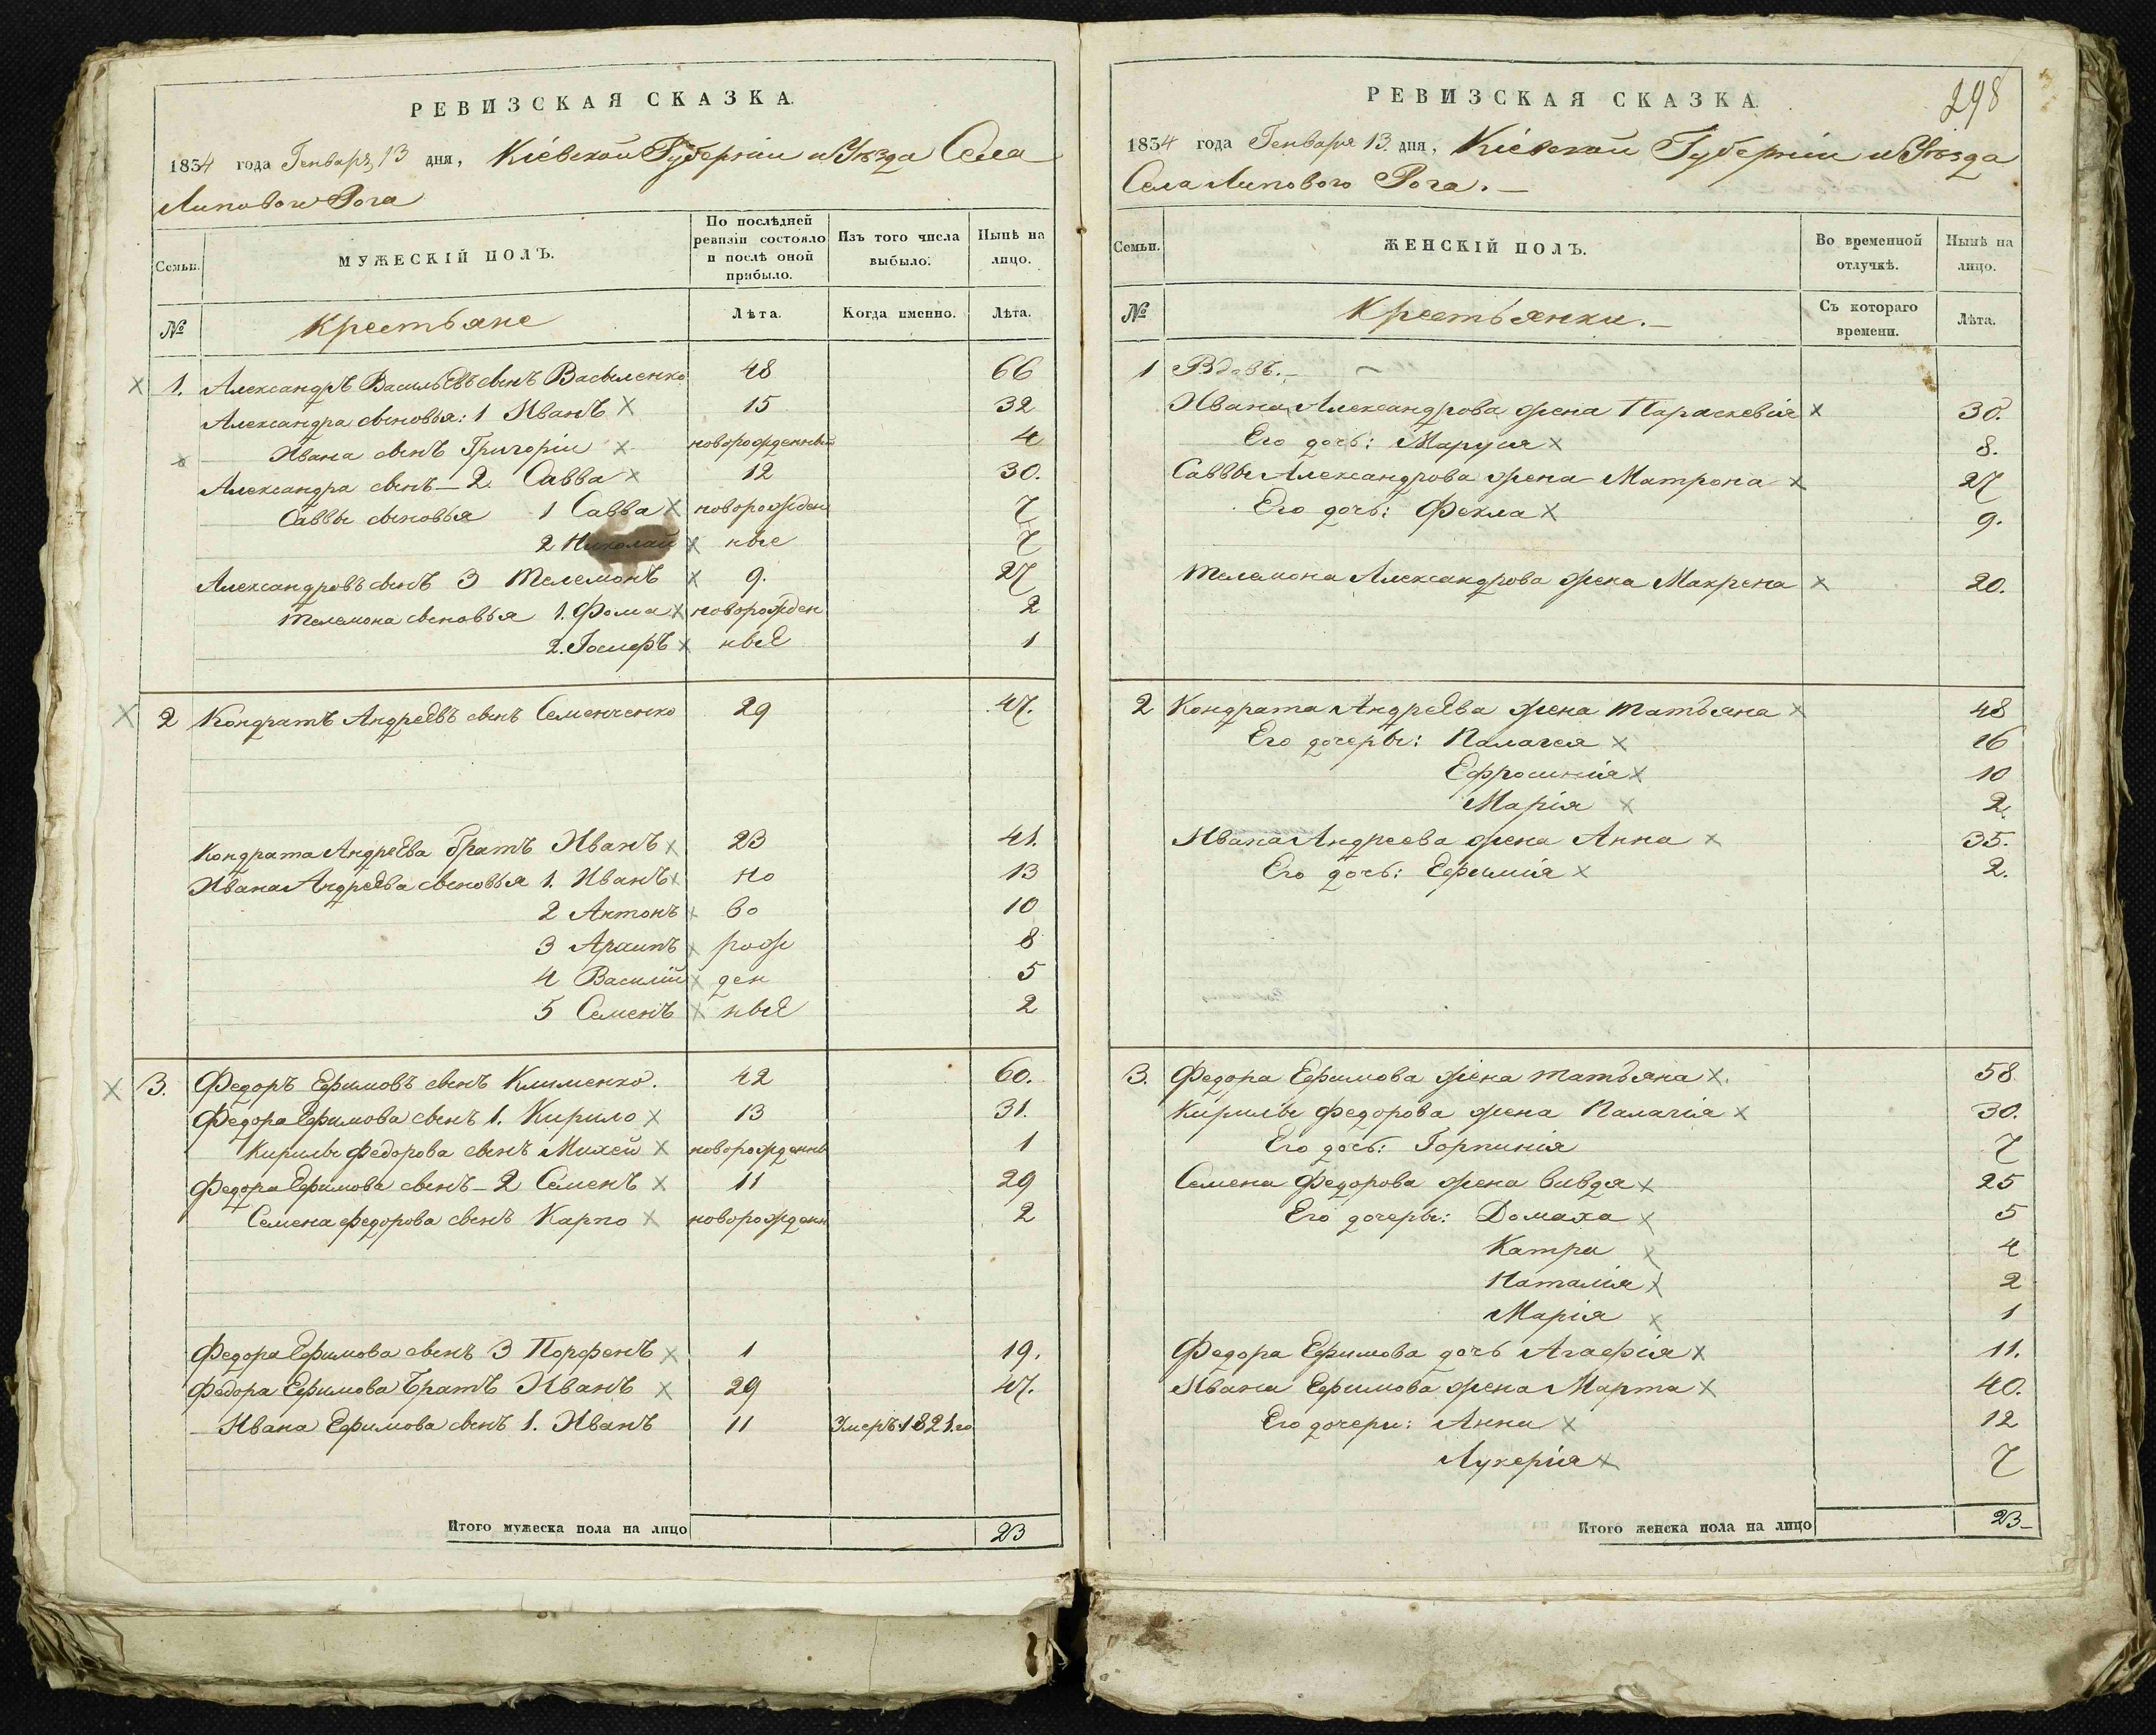 РЕВИЗСКАЯ СКАЗКА.
1834 года Генваря 13 дня, Кіевской Губерніи и Уѣзда Села
Липового Рога
Семьи. МУЖЕСКІЙ ПОЛЪ. По послѣдней ревизіи состояло и послѣ оной прибыло. Изъ того числа выбыло. Нынѣ на лицо.
№ Крестьяне Лѣта. Когда именно. Лѣта.
1. Александръ Васильевъ сынъ Василенко 48 66
Александра сыновья: 1 Иванъ 15 32
Ивана сынъ Григорій новорожденный 4
Александра сынъ 2 Савва 12 30.
Саввы сыновья 1 Савва новорожден 7
2 Николай ные 7
Александровъ сынъ 3 Телемонъ 9. 27
Телемона сыновья 1. Фома новорожден 2
2. Іосифъ ные 1
2 Кондратъ Андреевъ сынъ Семенченко 29 47.
Кондрата Андреева братъ Иванъ 23 41.
Ивана Андреева сыновья 1. Иванъ но 13
2 Антонъ во 10
3 Архипъ рож 8
4 Василій ден 5
5 Семенъ ные 2
3. Федоръ Ефимовъ сынъ Клименко. 42 60.
Федора Ефимова сынъ 1. Кирило 13 31.
Кирилы Федорова сынъ Михей новорожденны 1
Федора Ефимова сынъ 2 Семенъ 11 29
Семена Федорова сынъ Карпо новорожденн 2
Федора Ефимова сынъ 3 Порфенъ 1 19.
Федора Ефимова братъ Иванъ 29 47.
Ивана Ефимова сынъ 1. Иванъ 11 Умеръ 1821.го
Итого мужеска пола на лицо 23
298
РЕВИЗСКАЯ СКАЗКА.
1834 года Генваря 13. дня, Кіевской Губерніи и Уѣзда
Села Липового Рога.
Семьи. ЖЕНСКІЙ ПОЛЪ. Во временной отлучкѣ. Нынѣ на лицо.
№ Крестьянки. Съ котораго времени. Лѣта.
1 Вдовъ.
Ивана Александрова жена Параскевія 30.
Его дочь: Маруся 8.
Саввы Александрова жена Матрона 27
Его дочь: Фекла 9.
Телемона Александрова жена Макрена 20.
2 Кондрата Андреева жена Татьяна 48
Его дочеры: Палагея 16
Ефросинія 10
Марія 2.
Ивана Андреева жена Анна 35.
Его дочь: Ефимія 2.
3. Федора Ефимова жена Татьяна 58
Кирилы Федорова жена Палагія 30.
Его дочь: Горпинія 7
Семена Федорова жена Вивдя 25
Его дочеры: Домаха 5
Катря 4
Наталія 2
Марія 1
Федора Ефимова дочь Агафія 11.
Ивана Ефимова жена Марта 40.
Его дочери: Анна 12
Лукерія 7
Итого женска пола на лицо 23